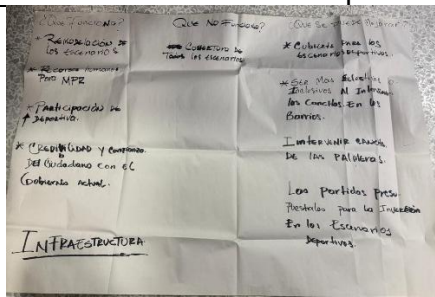 ¿Qué Funciona?
* Remodelación de
los escenarios
* Recurso humano
Para MPR
* Participación de
Deportiva.
* Credibilidad y confianza
Del Ciudadano con el
Gobierno Actual.
INFRAESTRUCTURA
Que No Funciona?
Cobertura de
Todos los escenarios
¿Que se puede Mejorar?
* Cubierta para los
escenarios Deportivos.
* Ser Mas
Inclusivos Al
las Canchas. En los
Barrios.
Intervenir cancha
De las Palmeras.
Los partidas Presu-
puestales para la Inversión
En los Escenarios
Deportivos.